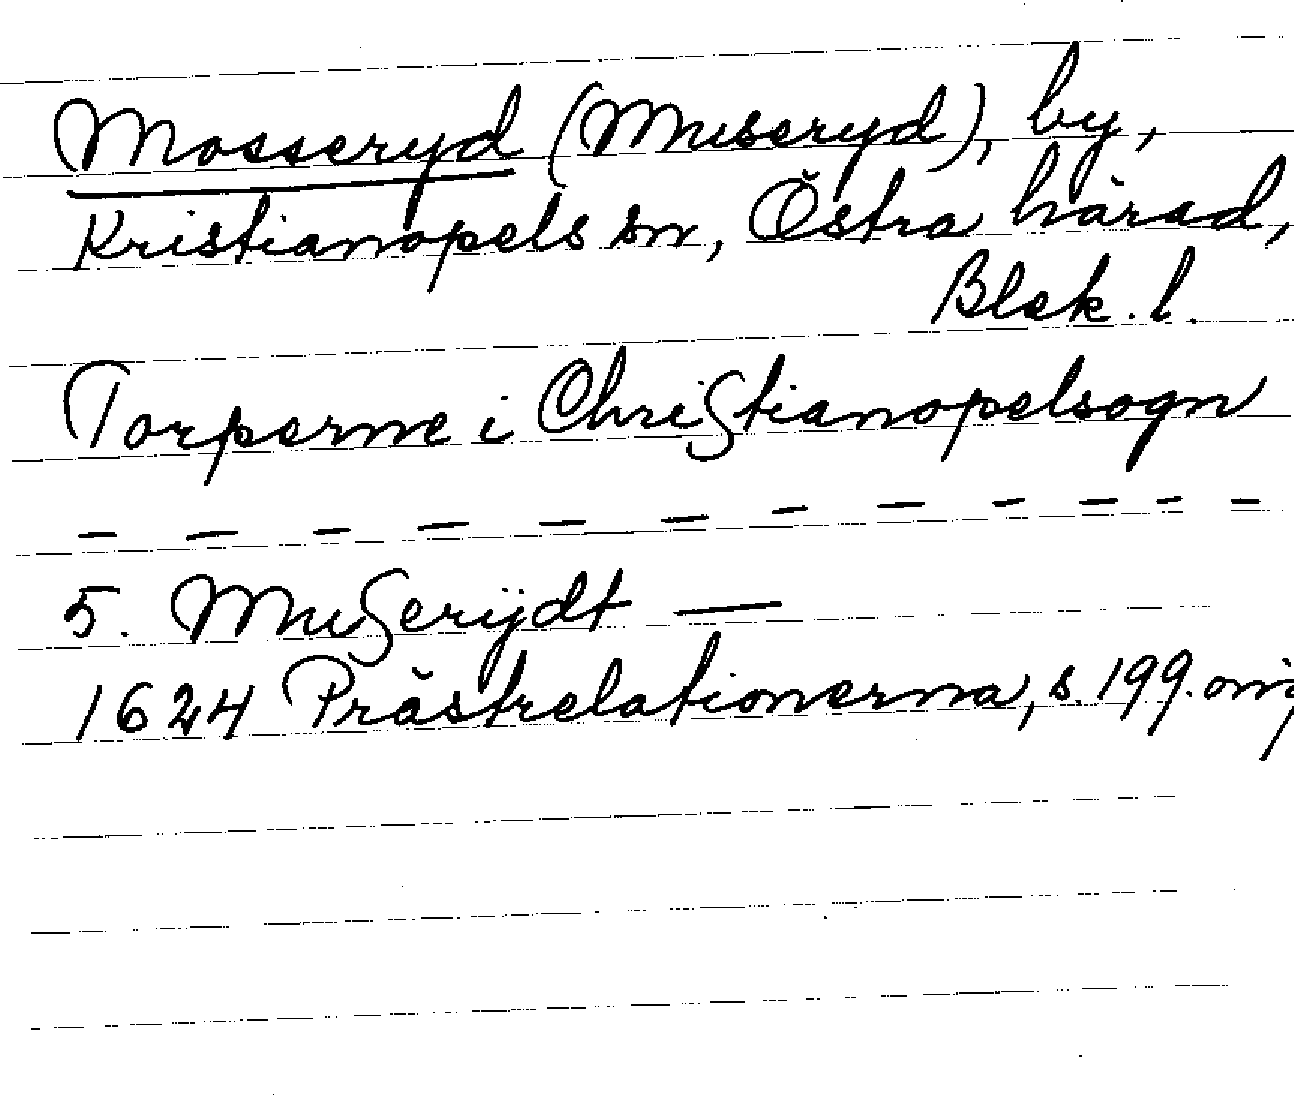 Mosseryd (Museryd), by,
Kristianopels sn, Östra härad,
Blek. l.
Torperne i Christianopelsogn
— — — — — — — — — — — —
5. Muserÿdt —
1624 Prästrelationerna, s. 199.